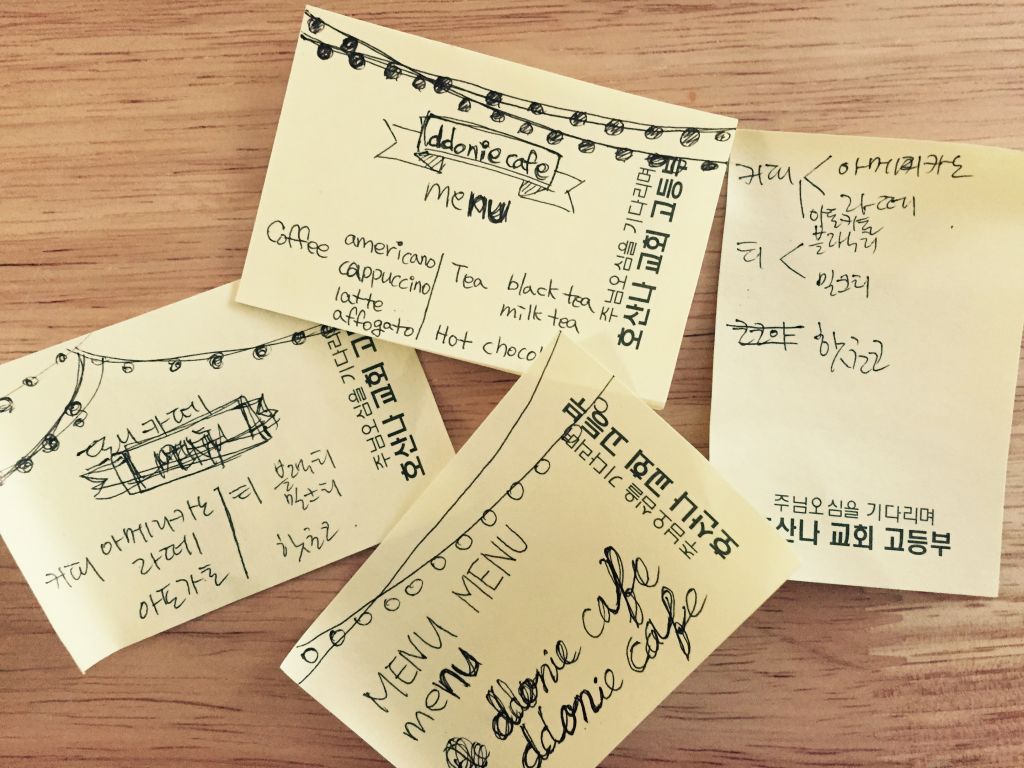 ddonie cafe
menu
Coffee americano
cappuccino
latte
affogato
Tea black tea
milk tea
Hot choco
주님오심을 기다리며
호산나 교회 고등부
커피 아메리카노
라떼
아포카토
티 블랙티
밀크티
코코아 핫초코
주님오심을 기다리며
호산나 교회 고등부
카페
커피 아메리카노
라떼
아포가토
티 블랙티
밀크티
핫초코
주님오심을 기다리며
호산나 교회 고
MENU MENU
menu
ddonie cafe
ddonie cafe
주님오심을 기다리며
호산나 교회 고등부